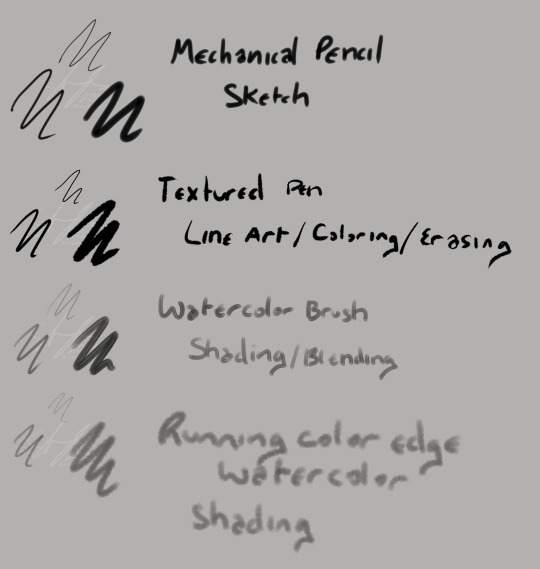 Mechanical Pencil
Sketch
Textured Pen
Line Art/Coloring/Erasing
Watercolor Brush
Shading/Blending
Running color edge
watercolor
Shading